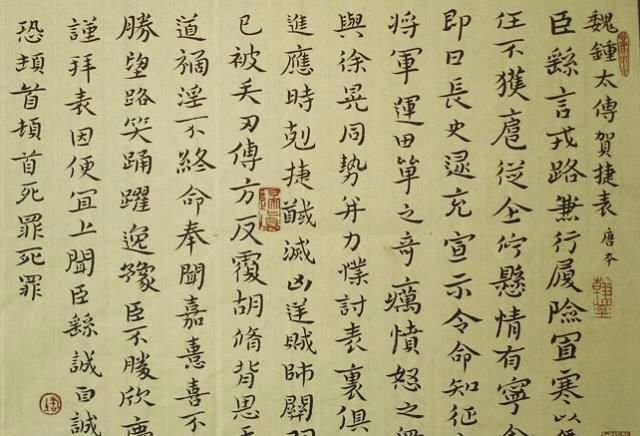 魏鍾太傅賀捷表 唐本
臣繇言戎路兼行履險冒寒以
任不獲扈從企佇懸情有寧舍
即日長史逯充宣示令命知征
將軍運田單之奇厲憤怒之
與徐晃同勢并力撲討表裏俱
進應時剋捷馘滅凶逆賊帥關羽
已被矢刃傅方反覆胡脩背恩天
道禍淫不終命奉聞嘉憙喜不
勝望路笑踊躍逸豫臣不勝欣慶
謹拜表因便宜上聞臣繇誠
恐頓首頓首死罪死罪